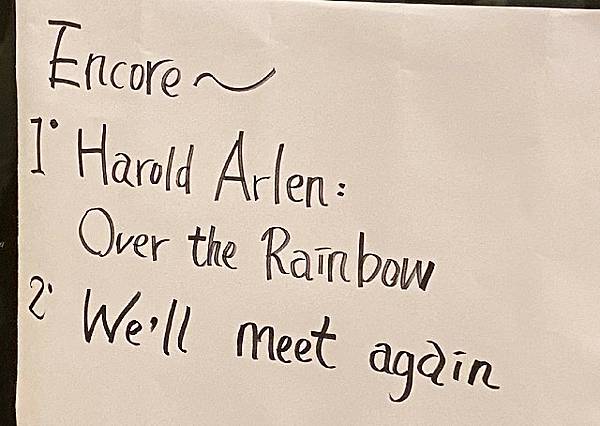 Encore~
1. Harold Arlen:
Over the Rainbow
2. We'll meet again